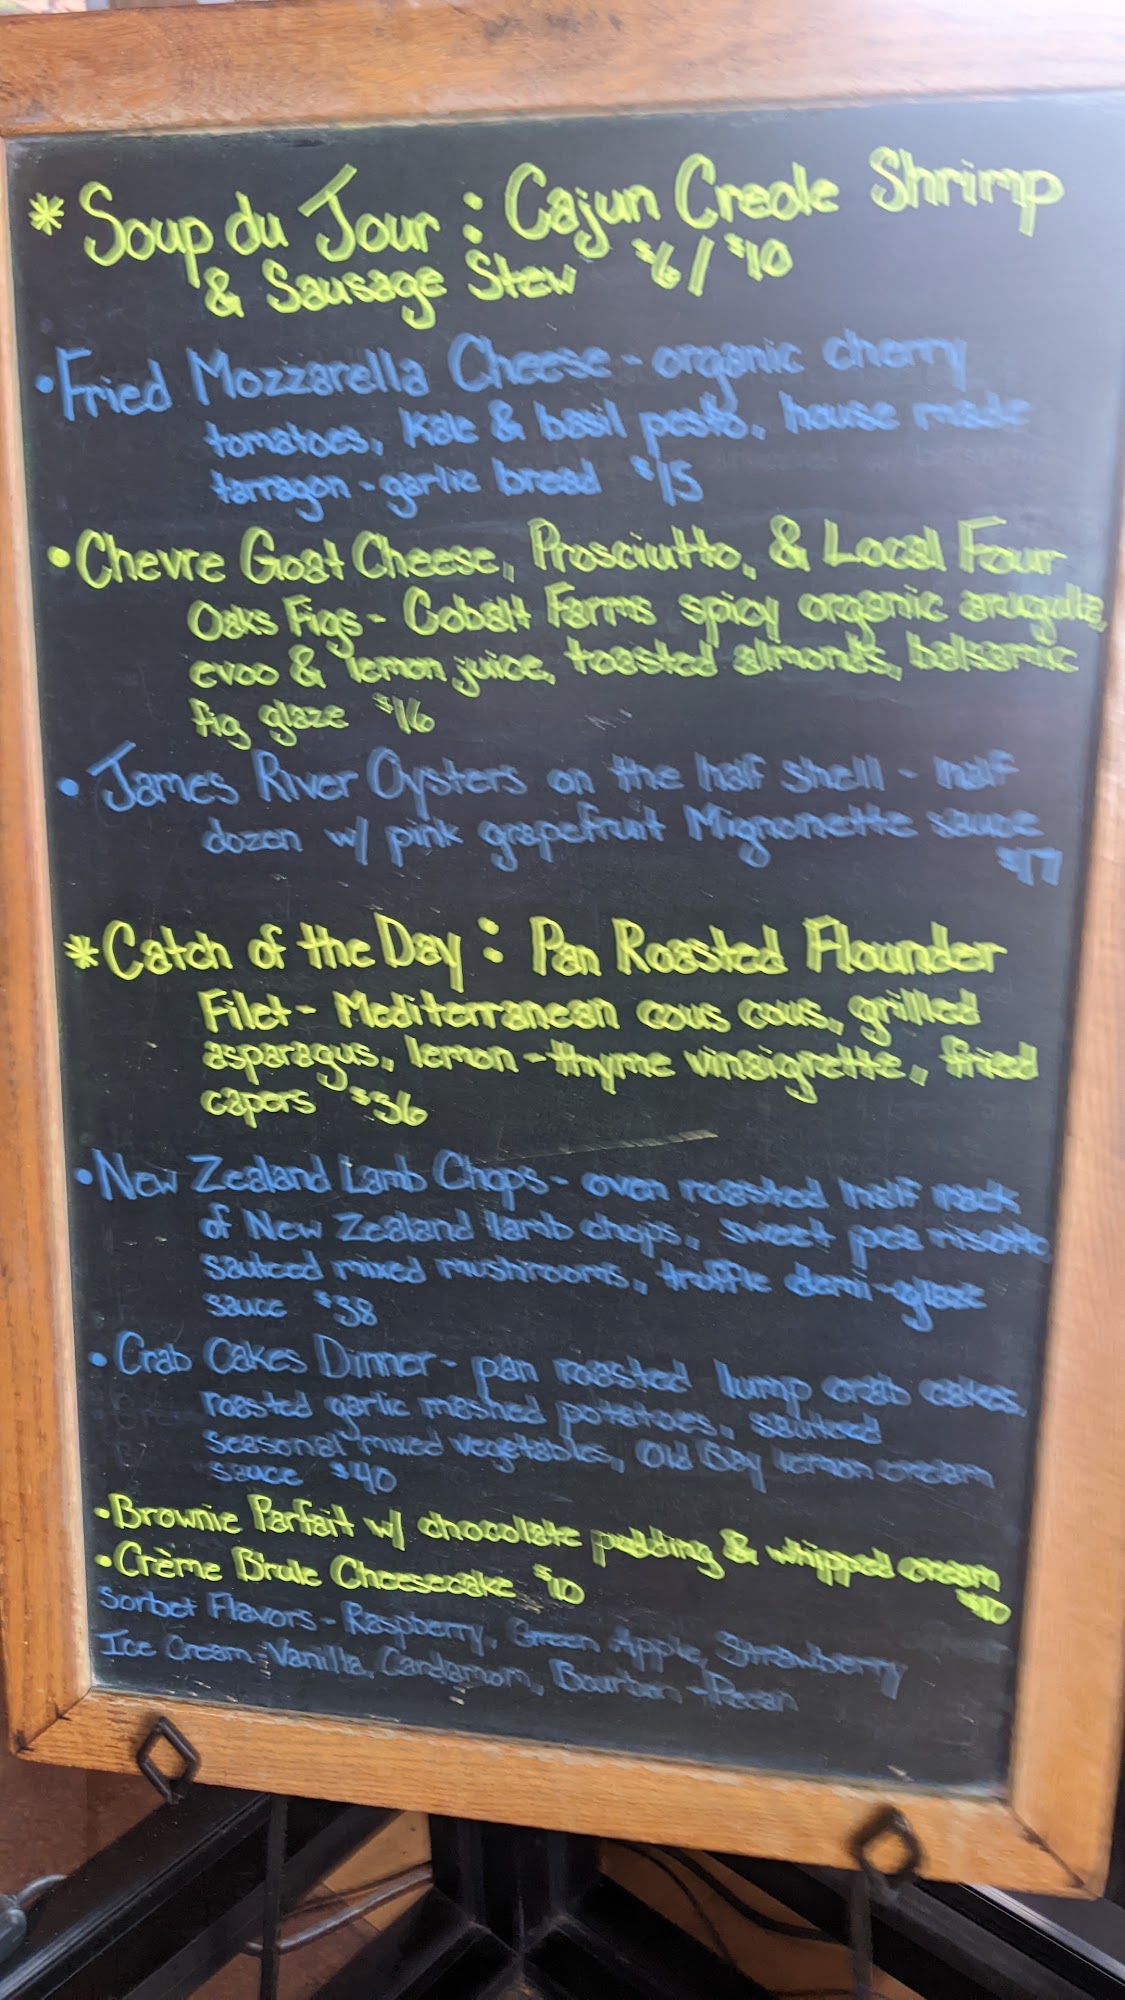 * Soup du Jour : Cajun Creole Shrimp
& Sausage Stew $6/$10
• Fried Mozzarella Cheese - organic cherry
tomatoes, kale & basil pesto, house made
tarragon - garlic bread $15
• Chevre Goat Cheese, Prosciutto, & Local Four
Oaks Figs - Cobalt Farms spicy organic arugula,
evoo & lemon juice, toasted almonds, balsamic
fig glaze $16
• James River Oysters on the half shell - half
dozen w/ pink grapefruit Mignonette sauce
$17
* Catch of the Day : Pan Roasted Flounder
Filet - Mediterranean cous cous, grilled
asparagus, lemon - thyme vinaigrette, fried
capers $36
• New Zealand Lamb Chops - oven roasted half rack
of New Zealand lamb chops, sweet pea risotto,
sauteed mixed mushrooms, truffle demi-glace
sauce $38
• Crab Cakes Dinner - pan roasted lump crab cakes,
roasted garlic mashed potatoes, sauteed
seasonal mixed vegetables, Old Bay lemon cream
sauce $40
• Brownie Parfait w/ chocolate pudding & whipped cream
$10
• Crème Brule Cheesecake $10
Sorbet Flavors - Raspberry, Green Apple, Strawberry
Ice Cream - Vanilla, Cardamom, Bourbon - Pecan